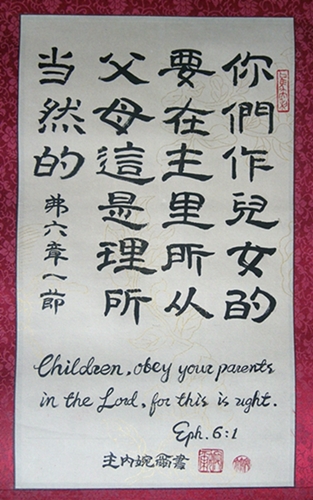 你們作兒女的
要在主里听从
父母這是理所
当然的 弗六章一節
Children, obey your parents
in the Lord, for this is right.
Eph. 6:1
主内婉書